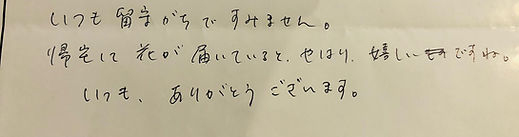 いつも留守がちですみません。
帰宅して花が届いていると、やはり、嬉しいですね。
いつも、ありがとうございます。